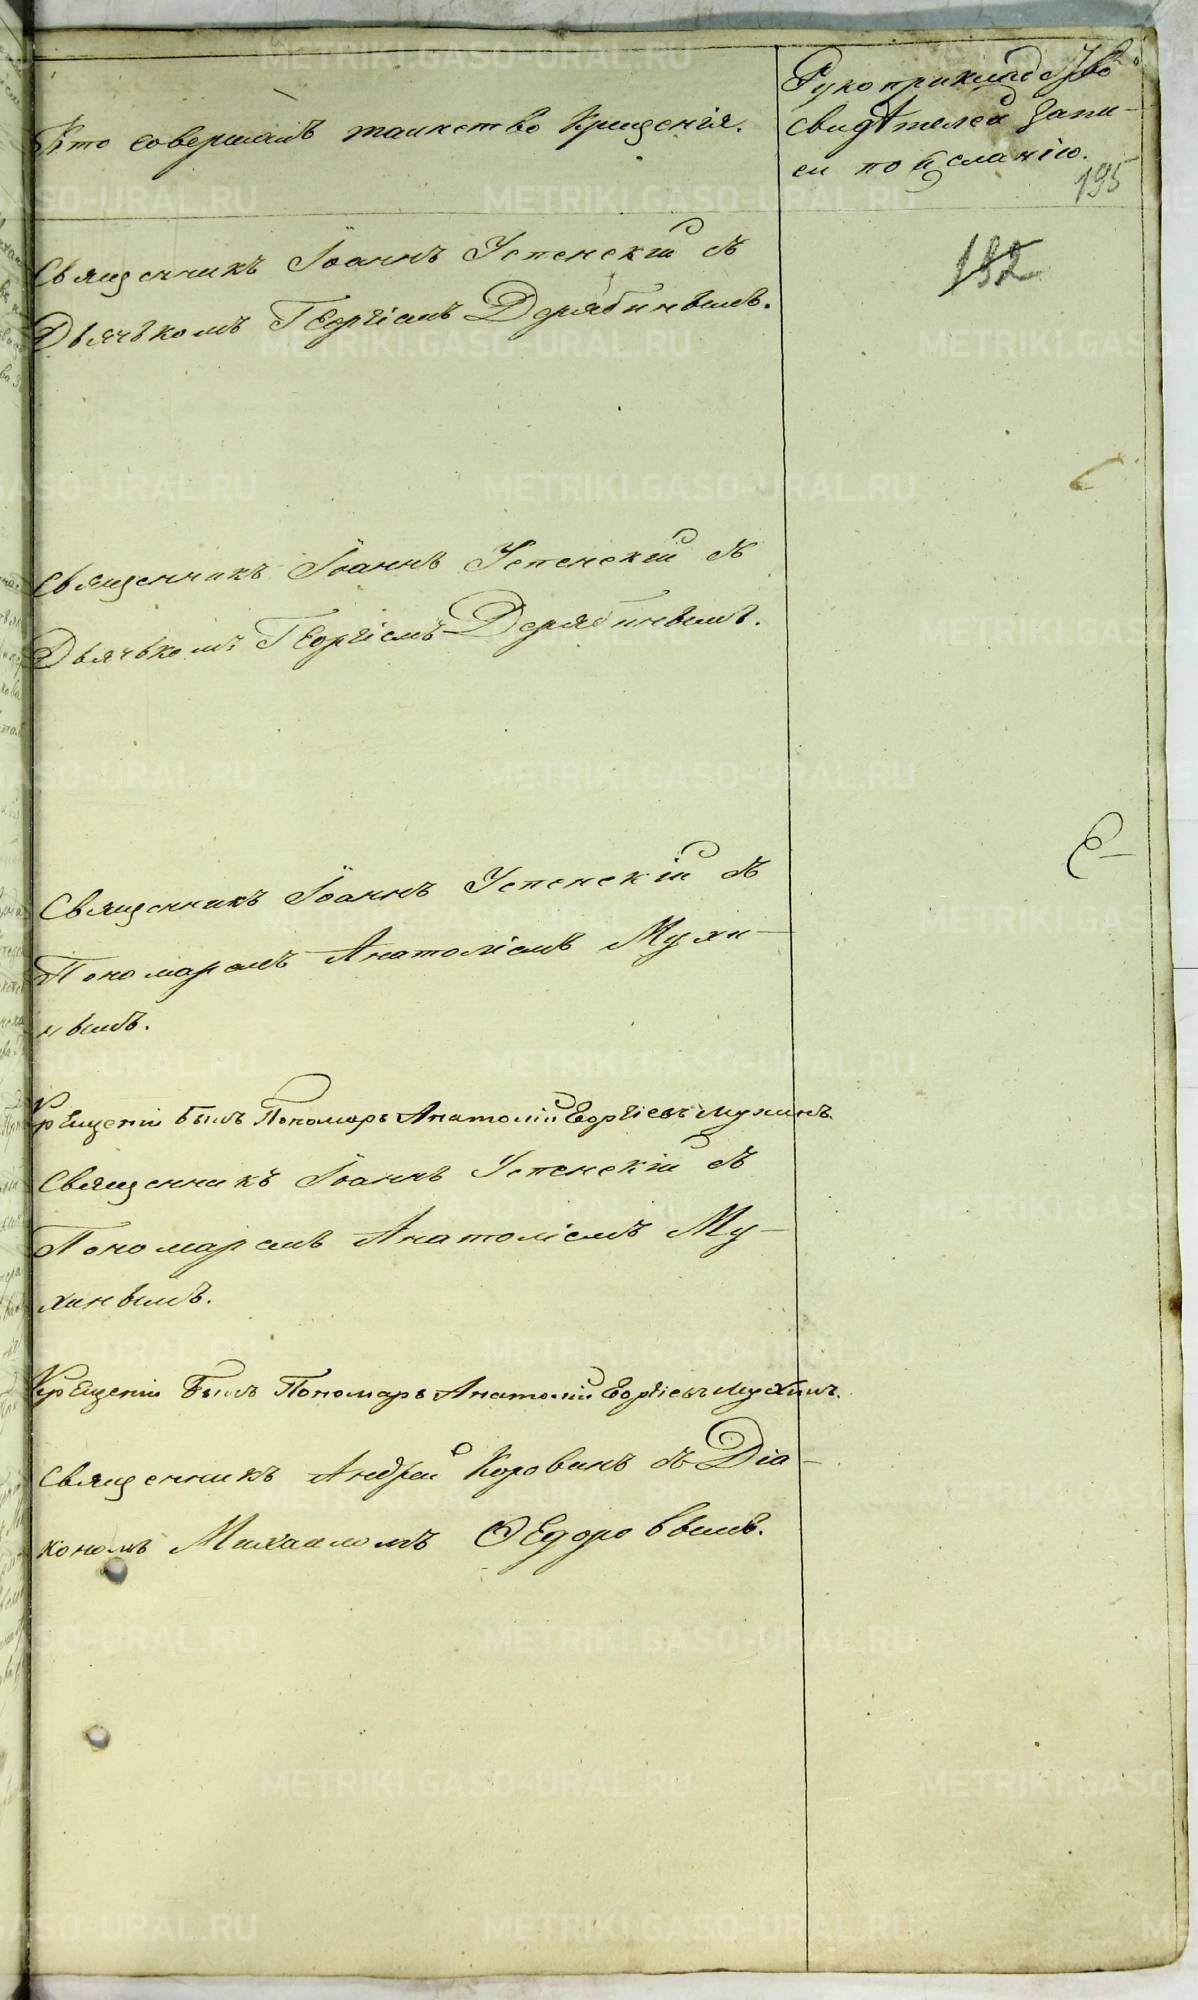 Кто совершалъ таинство Крещенія.
Рукоприкладство
свидѣтелей запи-
си по желанію.
195
192
Священникъ Іоаннъ Успенскій съ
Дьячькомъ Георгіемъ Дерябинымъ.
Священникъ Іоаннъ Успенскій съ
Дьячькомъ Георгіемъ Дерябинымъ.
Священникъ Іоаннъ Успенскій съ
Пономаремъ Анатоліемъ Мухи-
нымъ.
Крещеніи былъ Пономарь Анатолій Еоргіевъ Мухинъ.
Священникъ Іоаннъ Успенскій съ
Пономаремъ Анатоліемъ Му-
хинымъ.
Крещеніи былъ Пономарь Анатолій Еоргіевъ Мухинъ.
Священникъ Андрей Коровинъ съ Діа-
кономъ Михаиломъ Ѳедоровымъ.
METRIKI.GASO-URAL.RU